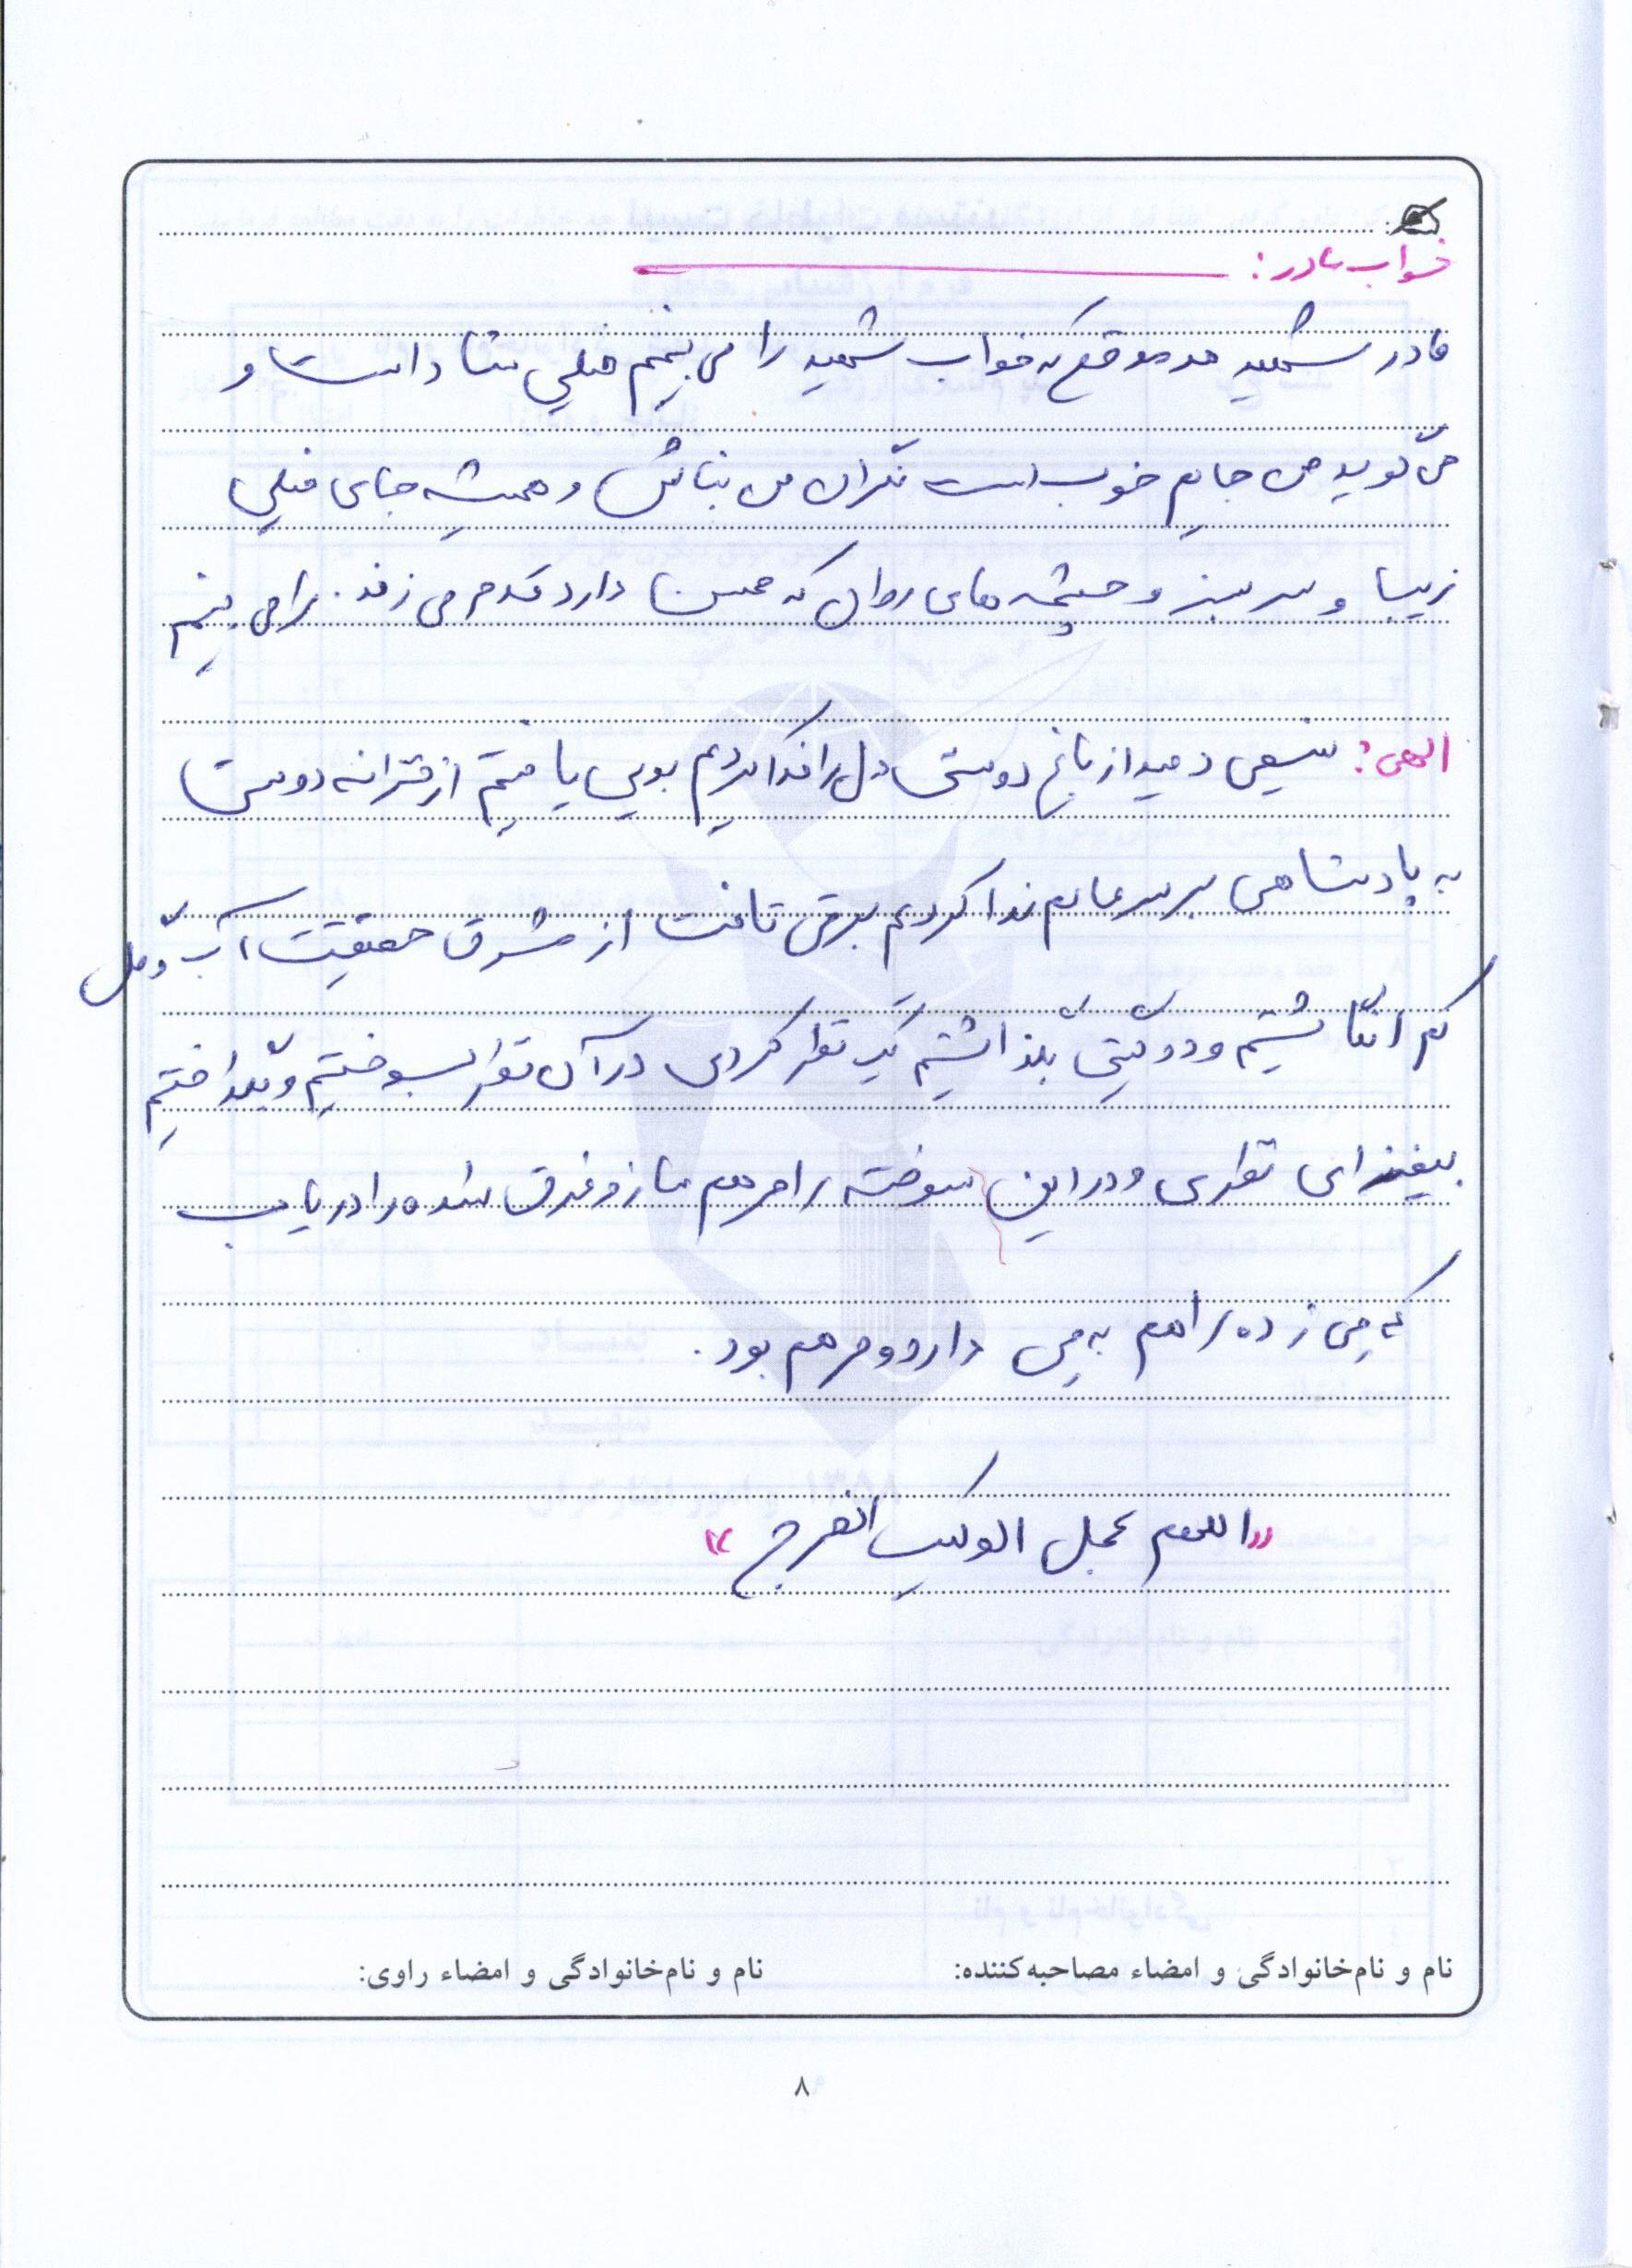 خواب مادر:
مادر شهید هر موقع که خواب شهید را می بینم خیلی شاد است و
می گوید من جایم خوب است نگران من نباش و همیشه جای خیلی
زیبا و سرسبز و چشمه های روان که محسن دارد قدم می زند. را می بینم
الهی: نسیمی دمید از باغ دوستی دل را فدا کردیم بویی یافتیم از خزانه دوستی
به پادشاهی بر سر عالم ندا کردیم برقی تافت از مشرق حقیقت آب و گل
کم انگاشتیم و دو گیتی بگذاشتیم یک نظر کردی در آن نظر بسوختیم و بگداختیم
بیفزای نظری و در این سوخته را مرهم ساز و غرق شده را دریاب
که می زده را هم به می دارو و مرهم بود.
«اللهم عجل الولیک الفرج»
نام و نام‌خانوادگی و امضاء مصاحبه‌کننده: نام و نام‌خانوادگی و امضاء راوی:
۸